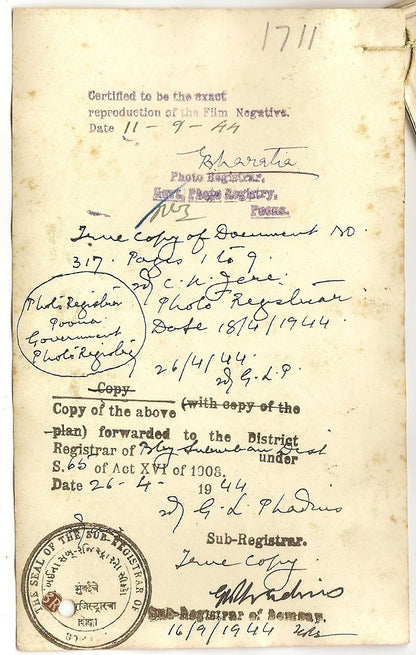 1711
Certified to be the exact
reproduction of the Film Negative.
Date 11-9-44
Photo Registrar,
Govt. Photo Registry,
Poona.
True copy of Document No.
317. Pages 1 to 9.
Photo Registrar.
Date 18/4/1944.
Photo Registrar
Poona
Government
Photo Registry
26/4/44.
sd/ G. L. P.
Copy
Copy of the above (with copy of the
plan) forwarded to the District
Registrar of Bby Suburban Dist under
S. 65 of Act XVI of 1908.
Date 26-4-1944
sd/ G. L. Phadnis
Sub-Registrar.
True Copy
Sub-Registrar of Bombay.
16/9/1944
THE SEAL OF THE SUB-REGISTRAR OF